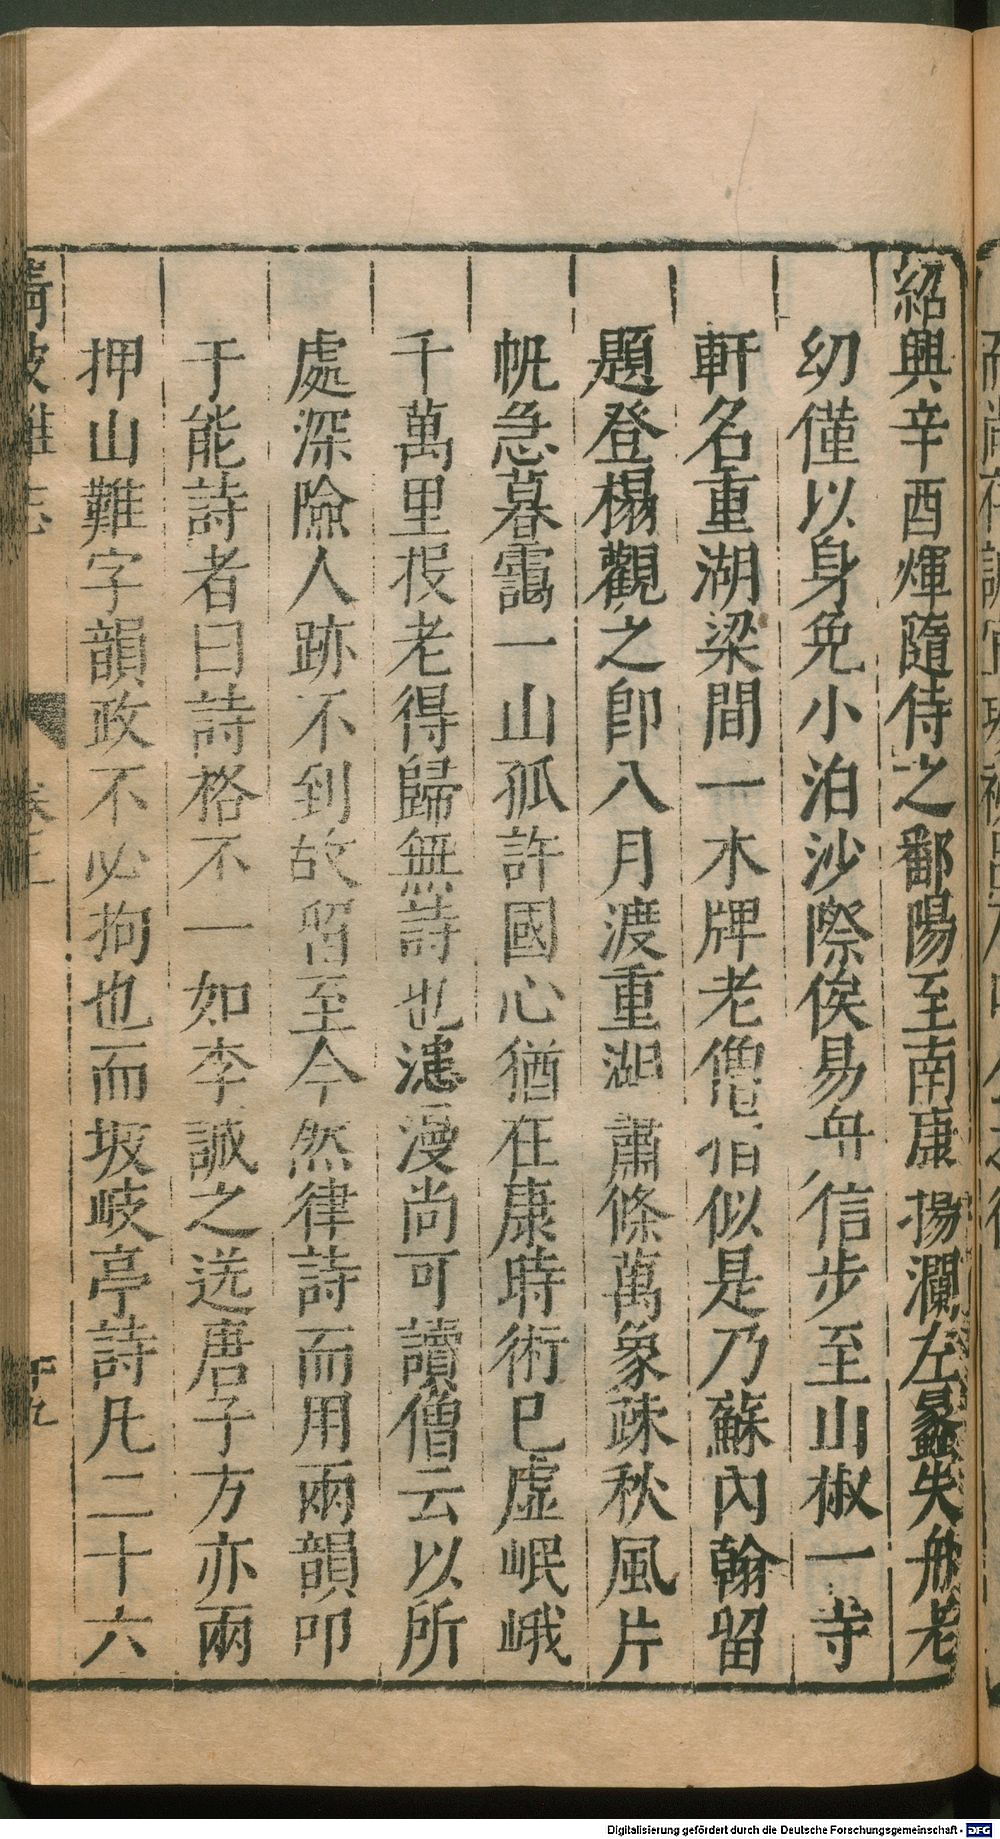 紹興辛酉煇隨侍之鄱陽至南康揚瀾左蠡失舟老
幼僅以身免小泊沙際俟易舟信步至山椒一寺
軒名重湖梁間一木牌老僧指似是乃蘇內翰留
題登榻觀之卽八月渡重湖蕭條萬象疎秋風片
帆急暮靄一山孤許國心猶在康時術已虛岷峨
千萬里投老得歸無詩也漶漫尚可讀僧云以所
處深險人跡不到故留至今然律詩而用兩韻叩
于能詩者曰詩格不一如李誠之送唐子方亦兩
押山難字韻政不必拘也而坡岐亭詩凡二十六
清波雜志
卷
十九
Digitalisierung gefördert durch die Deutsche Forschungsgemeinschaft - DFG